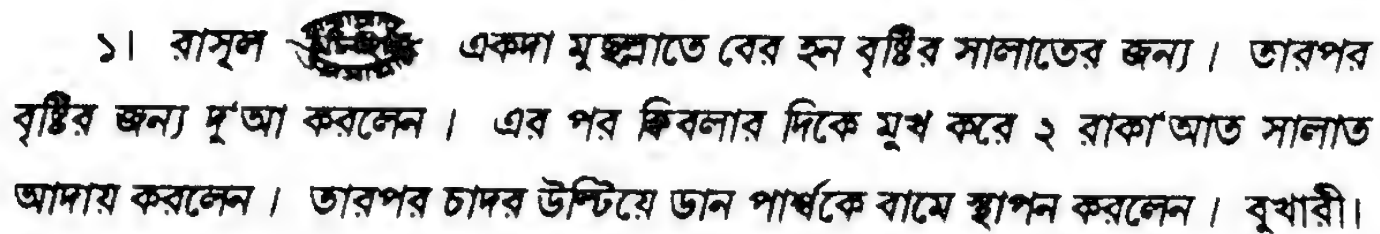 ১। রাসূল একদা মুছল্লাতে বের হন বৃষ্টির সালাতের জন্য। তারপর
বৃষ্টির জন্য দু'আ করলেন। এর পর ক্বিবলার দিকে মুখ করে ২ রাকা'আত সালাত
আদায় করলেন। তারপর চাদর উল্টিয়ে ডান পার্শ্বকে বামে স্থাপন করলেন। বুখারী।